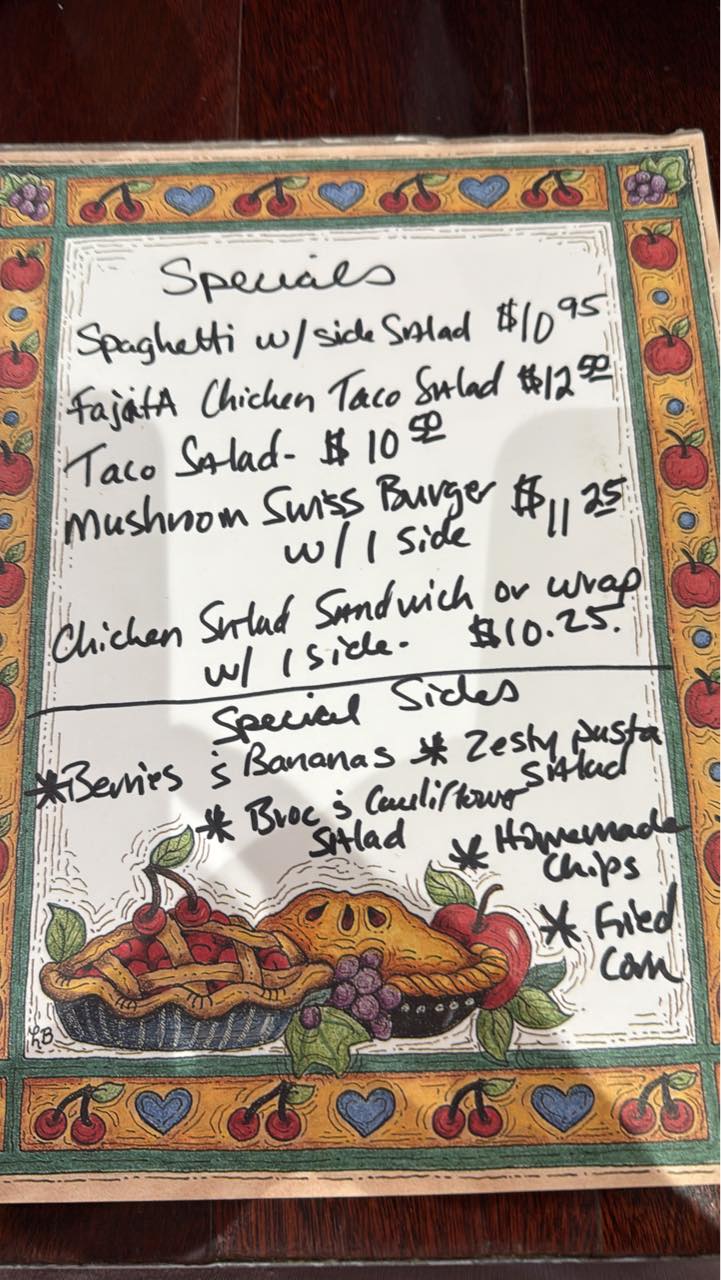 Specials
Spaghetti w/ side Salad $10 95
Fajita Chicken Taco Salad $12 50
Taco Salad - $ 10 50
Mushroom Swiss Burger $11 25
w/ 1 side
Chicken Salad Sandwich or wrap
w/ 1 side. $10.25.
Special Sides
*Berries & Bananas * Zesty pasta
Salad
* Broc & Cauliflower
Salad
* Homemade
Chips
* Fried
Corn
LB